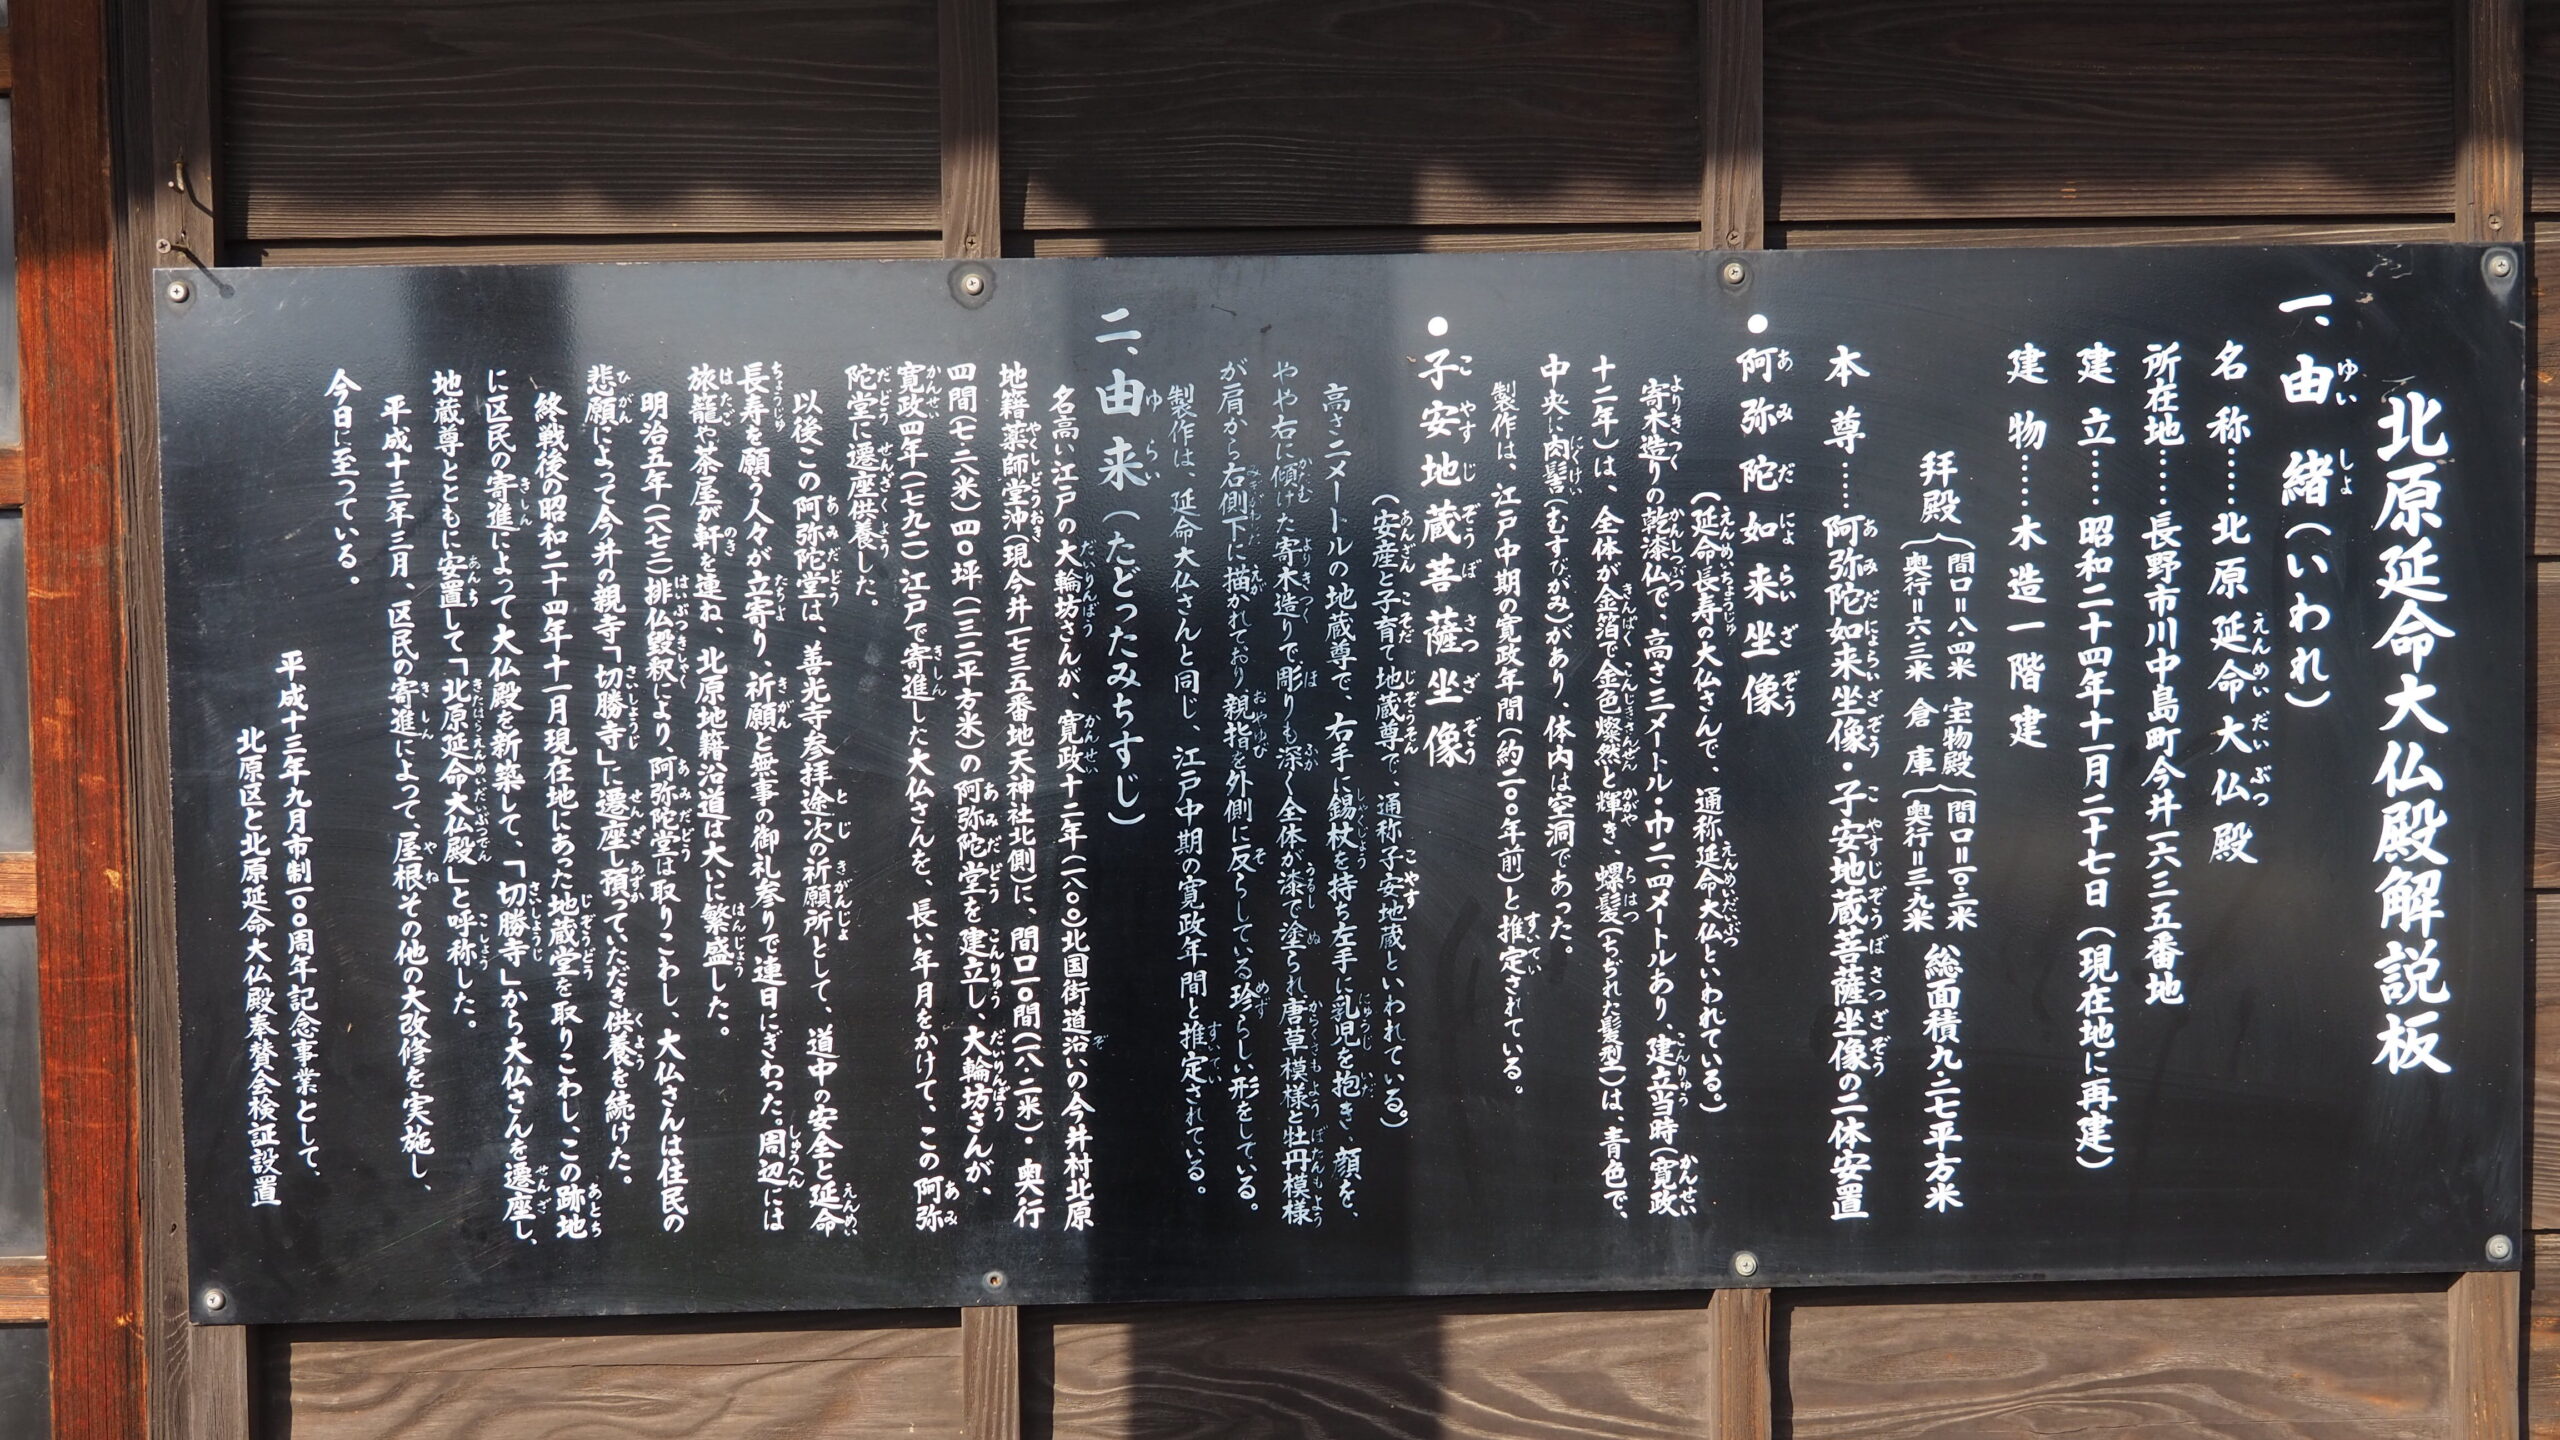 北原延命大仏殿解説板
一、由緒(いわれ)
名称……北原延命大仏殿
所在地……長野市川中島町今井一六三五番地
建立……昭和二十四年十一月二十七日(現在地に再建)
建物……木造一階建
拝殿{間口=八・四米 奥行=六・三米 宝物殿 倉庫{間口=一〇・三米 奥行=三・九米 総面積九・二七平方米
本尊……阿弥陀如来坐像・子安地蔵菩薩坐像の二体安置
●阿弥陀如来坐像
(延命長寿の大仏さんで、通称延命大仏といわれている。)
寄木造りの乾漆仏で、高さ三メートル・巾二・四メートルあり、建立当時(寛政
十二年)は、全体が金箔で金色燦然と輝き、螺髪(ちぢれた髪型)は、青色で、
中央に肉髻(むすびがみ)があり、体内は空洞であった。
製作は、江戸中期の寛政年間(約二〇〇年前)と推定されている。
●子安地蔵菩薩坐像
(安産と子育て地蔵尊で、通称子安地蔵といわれている。)
高さ二メートルの地蔵尊で、右手に錫杖を持ち左手に乳児を抱き、顔を、
やや右に傾けた寄木造りで彫りも深く全体が漆で塗られ唐草模様と牡丹模様
が肩から右側下に描かれており親指を外側に反らしている珍らしい形をしている。
製作は、延命大仏さんと同じ、江戸中期の寛政年間と推定されている。
二、由来(たどったみちすじ)
名高い江戸の大輪坊さんが、寛政十二年(一八〇〇)北国街道沿いの今井村北原
地籍薬師堂沖(現今井一七三五番地天神社北側)に、間口一〇間(一八・二米)・奥行
四間(七・二八米)四〇坪(一三二平方米)の阿弥陀堂を建立し、大輪坊さんが、
寛政四年(一七九二)江戸で寄進した大仏さんを、長い年月をかけて、この阿弥
陀堂に遷座供養した。
以後この阿弥陀堂は、善光寺参拝途次の祈願所として、道中の安全と延命
長寿を願う人々が立寄り、祈願と無事の御礼参りで連日にぎわった。周辺には
旅籠や茶屋が軒を連ね、北原地籍沿道は大いに繁盛した。
明治五年(一八七二)排仏毀釈により、阿弥陀堂は取りこわし、大仏さんは住民の
悲願によって今井の親寺「切勝寺」に遷座し預っていただき供養を続けた。
終戦後の昭和二十四年十一月現在地にあった地蔵堂を取りこわし、この跡地
に区民の寄進によって大仏殿を新築して、「切勝寺」から大仏さんを遷座し、
地蔵尊とともに安置して「北原延命大仏殿」と呼称した。
平成十三年三月、区民の寄進によって、屋根その他の大改修を実施し、
今日に至っている。
平成十三年九月市制一〇〇周年記念事業として、
北原区と北原延命大仏殿奉賛会検証設置